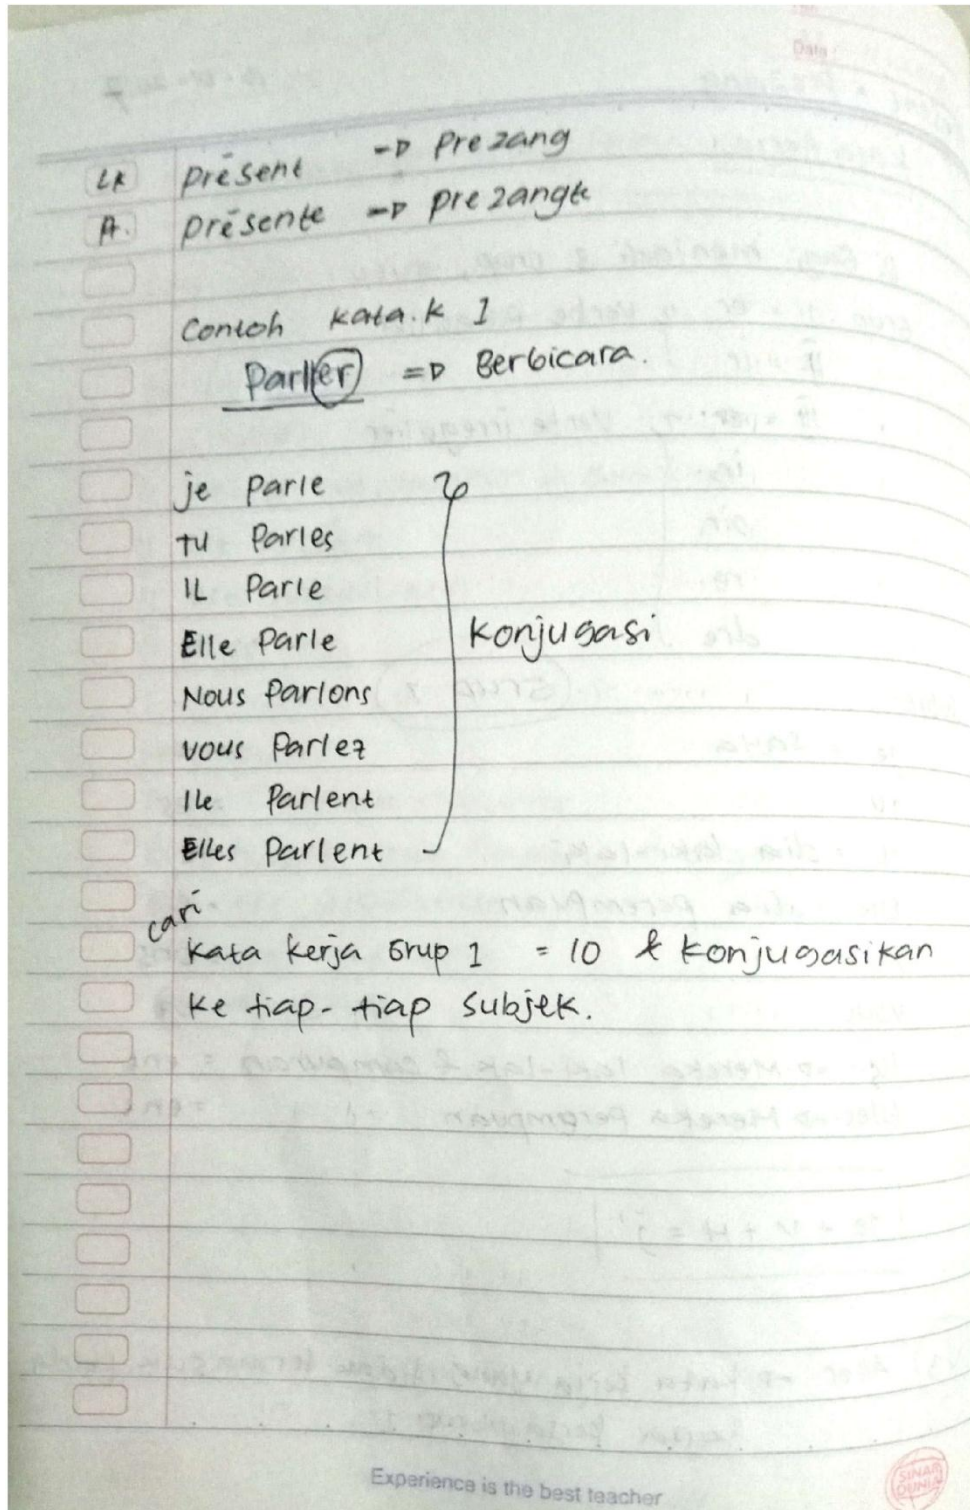 Date
LK présent -> Prezang
P. présente -> prezangte
Contoh kata.k 1
Parler => Berbicara.
je Parle
tu Parles
IL Parle
Elle Parle
Nous Parlons
vous Parlez
Ils Parlent
Elles Parlent
Konjugasi
cari
Kata kerja Grup 1 = 10 & konjugasikan
ke tiap-tiap subjek.
Experience is the best teacher
SINAR DUNIA